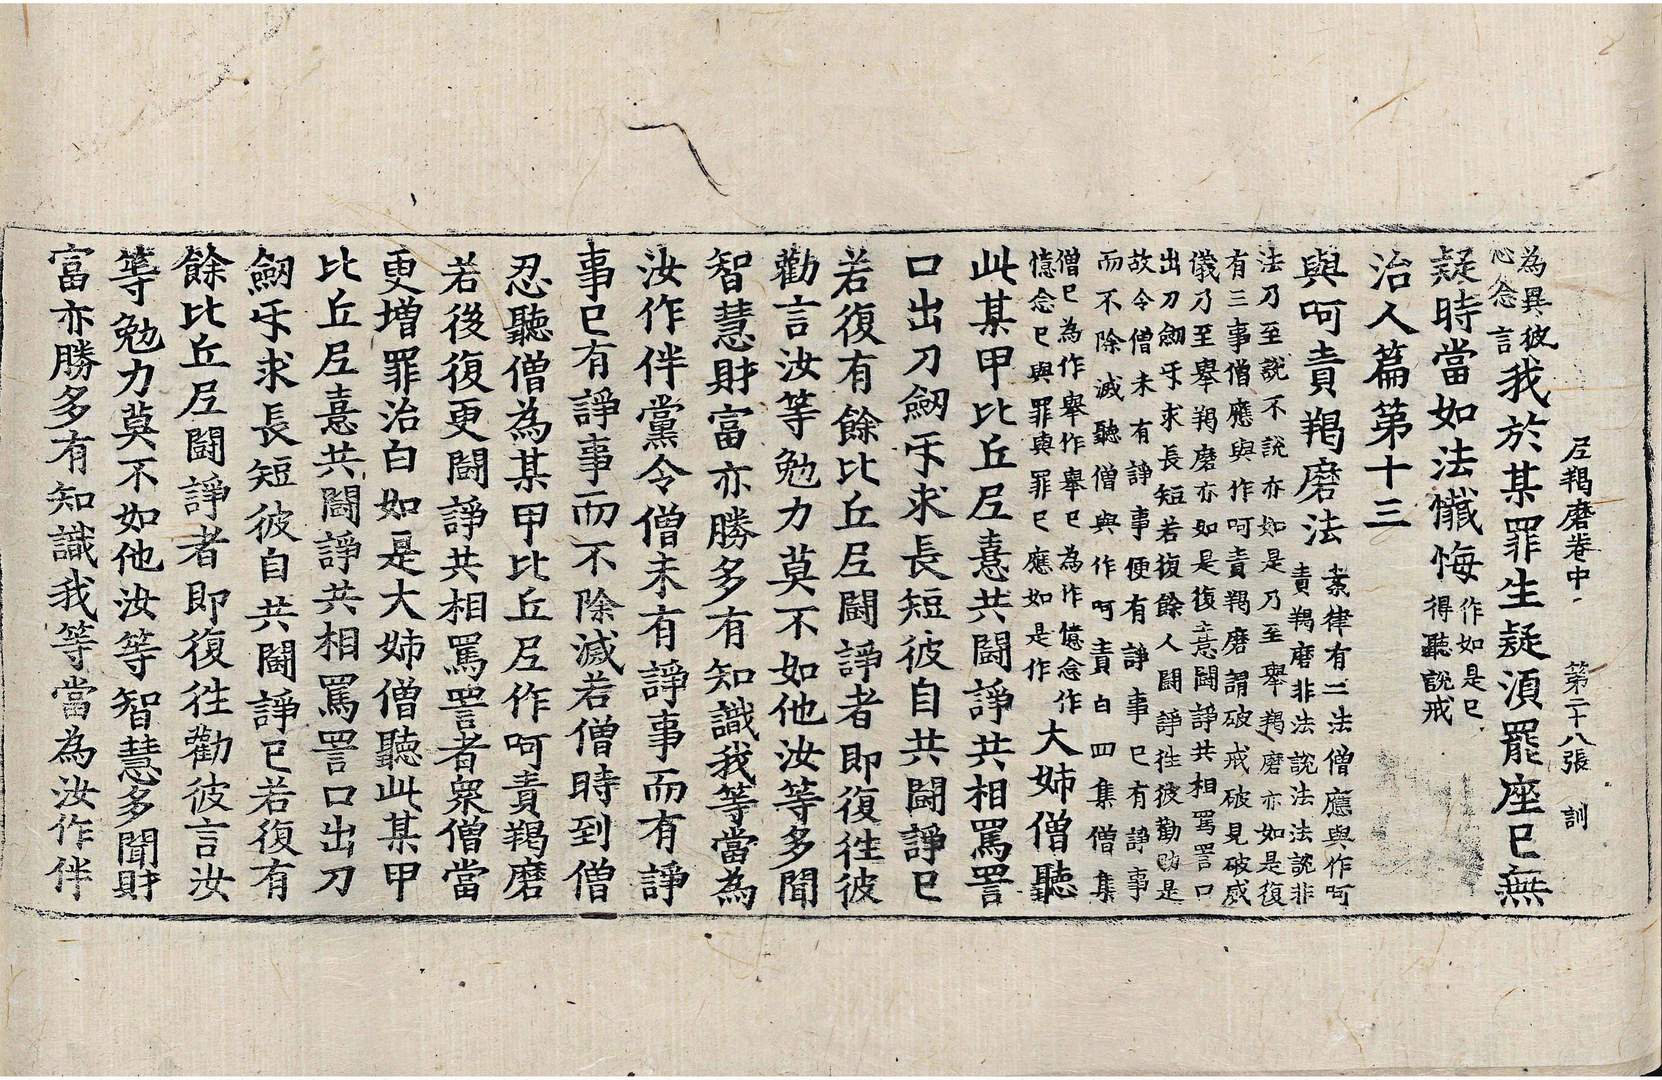 尼羯磨卷中　第二十八張　訓
為異彼
心念言
我於某罪生疑湏罷座已無
疑時當如法懺悔
作如是已
得聽說戒
治人篇第十三
與呵責羯磨法
案律有二法僧應與作呵
責羯磨非法說法法說非
法乃至說不說亦如是乃至舉羯磨亦如是復
有三事僧應與作呵責羯磨謂破戒破見破威
儀乃至舉羯磨亦如是復憙鬪諍共相罵詈口
出刀劔㸦求長短若復餘人鬪諍往彼勸助是
故令僧未有諍事便有諍事已有諍事
而不除滅聽僧與作呵責白四集僧集
僧已為作舉作舉已為作憶念作
憶念已與罪與罪已應如是作
大姉僧聽
此某甲比丘尼憙共鬪諍共相罵詈
口出刀劔㸦求長短彼自共鬪諍已
若復有餘比丘尼鬪諍者即復往彼
勸言汝等勉力莫不如他汝等多聞
智慧財富亦勝多有知識我等當為
汝作伴黨令僧未有諍事而有諍
事已有諍事而不除滅若僧時到僧
忍聽僧為某甲比丘尼作呵責羯磨
若後復更鬪諍共相罵詈者衆僧當
更增罪治白如是大姉僧聽此某甲
比丘尼憙共鬪諍共相罵詈口出刀
劔㸦求長短彼自共鬪諍已若復有
餘比丘尼鬪諍者即復往勸彼言汝
等勉力莫不如他汝等智慧多聞財
富亦勝多有知識我等當為汝作伴